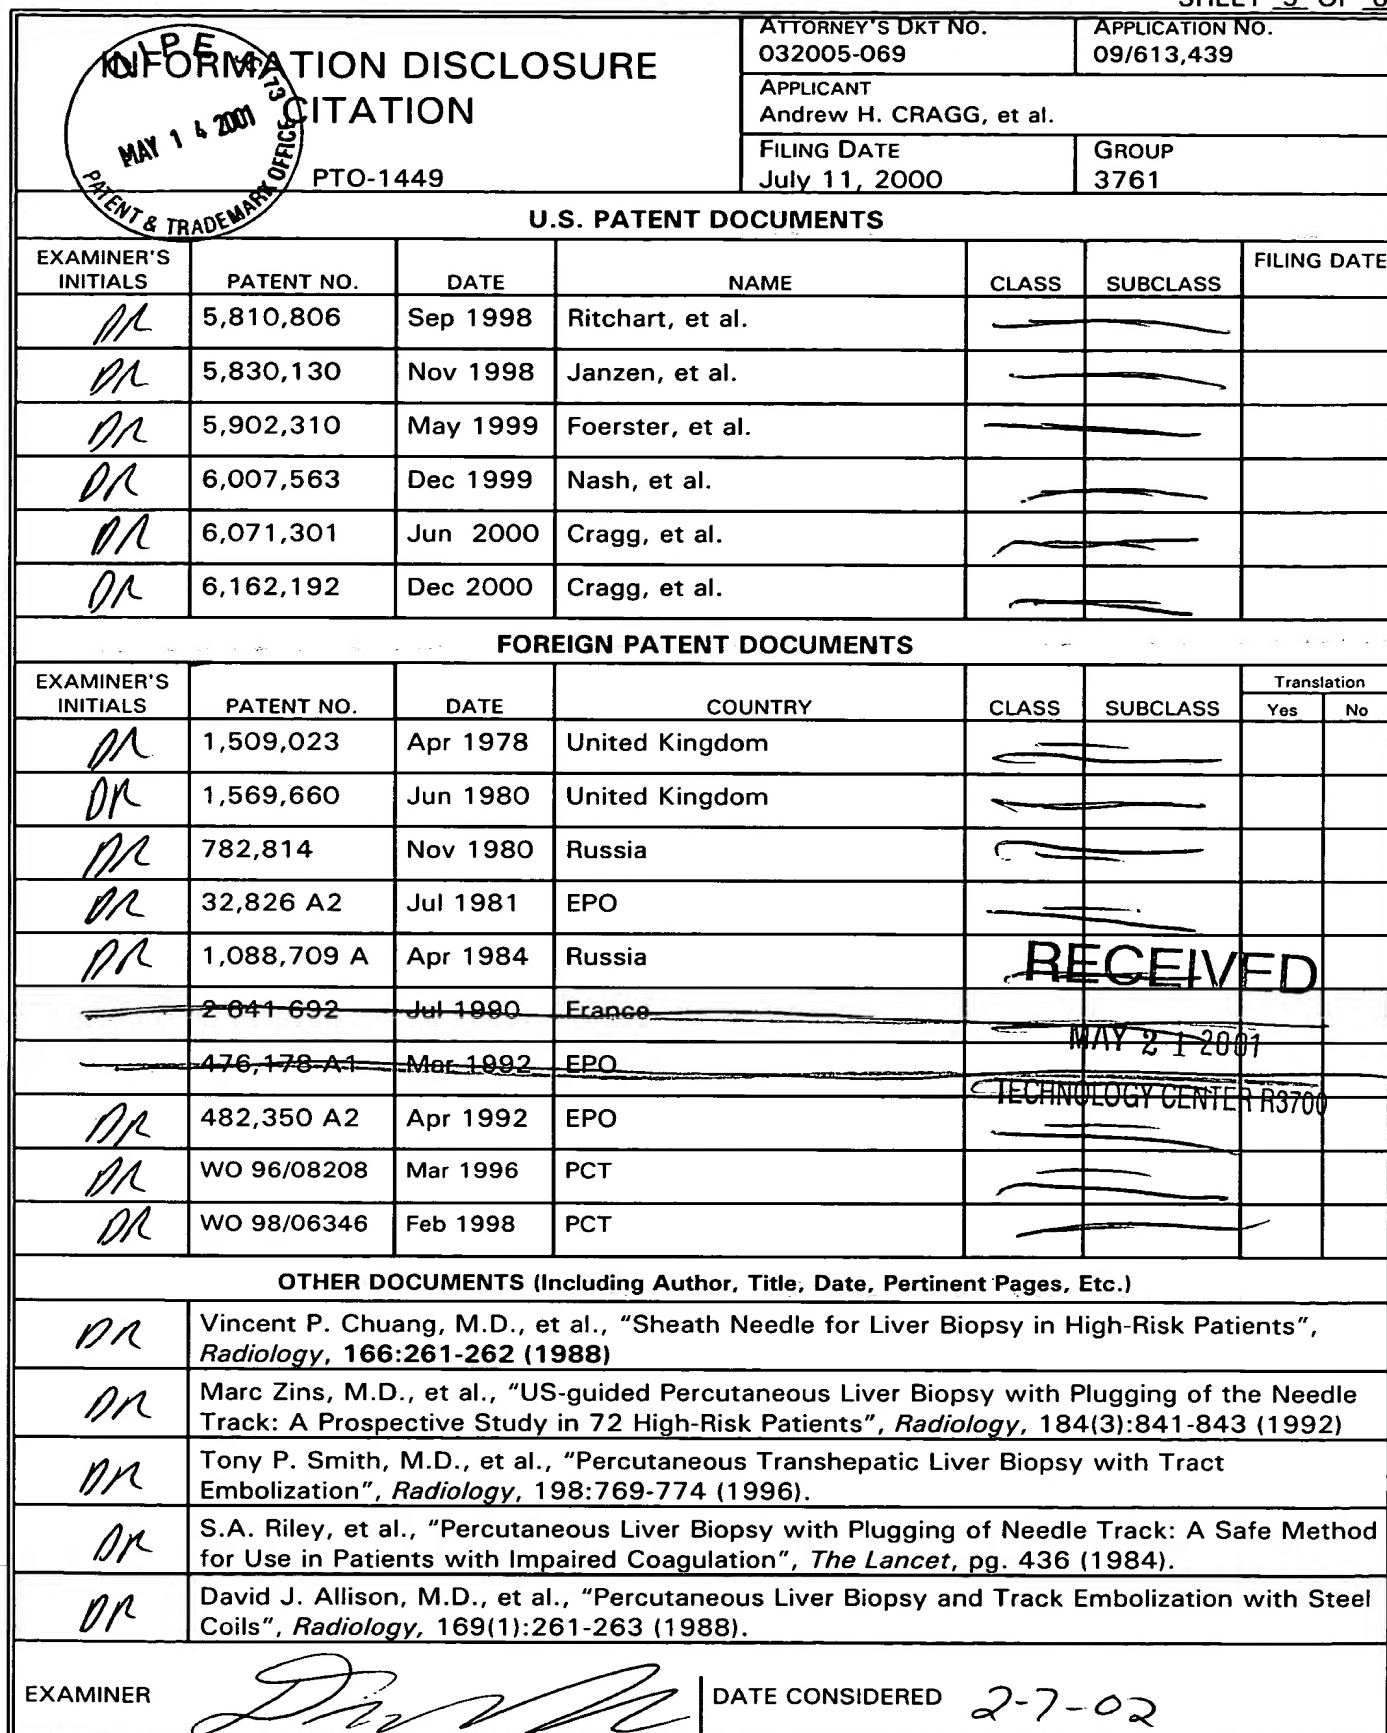 SHEET 5 OF
INFORMATION DISCLOSURE
CITATION
PTO-1449
OIPE
MAY 14 2001
PATENT & TRADEMARK OFFICE
ATTORNEY'S DKT NO.
032005-069
APPLICATION NO.
09/613,439
APPLICANT
Andrew H. CRAGG, et al.
FILING DATE
July 11, 2000
GROUP
3761
U.S. PATENT DOCUMENTS
EXAMINER'S INITIALS PATENT NO. DATE NAME CLASS SUBCLASS FILING DATE
DR 5,810,806 Sep 1998 Ritchart, et al.
DR 5,830,130 Nov 1998 Janzen, et al.
DR 5,902,310 May 1999 Foerster, et al.
DR 6,007,563 Dec 1999 Nash, et al.
DR 6,071,301 Jun 2000 Cragg, et al.
DR 6,162,192 Dec 2000 Cragg, et al.
FOREIGN PATENT DOCUMENTS
EXAMINER'S INITIALS PATENT NO. DATE COUNTRY CLASS SUBCLASS Translation Yes No
DR 1,509,023 Apr 1978 United Kingdom
DR 1,569,660 Jun 1980 United Kingdom
DR 782,814 Nov 1980 Russia
DR 32,826 A2 Jul 1981 EPO
DR 1,088,709 A Apr 1984 Russia
RECEIVED
2 641 692 Jul 1990 France
MAY 21 2001
476,178 A1 Mar 1992 EPO
TECHNOLOGY CENTER R3700
DR 482,350 A2 Apr 1992 EPO
DR WO 96/08208 Mar 1996 PCT
DR WO 98/06346 Feb 1998 PCT
OTHER DOCUMENTS (Including Author, Title, Date, Pertinent Pages, Etc.)
DR Vincent P. Chuang, M.D., et al., "Sheath Needle for Liver Biopsy in High-Risk Patients",
Radiology, 166:261-262 (1988)
DR Marc Zins, M.D., et al., "US-guided Percutaneous Liver Biopsy with Plugging of the Needle
Track: A Prospective Study in 72 High-Risk Patients", Radiology, 184(3):841-843 (1992)
DR Tony P. Smith, M.D., et al., "Percutaneous Transhepatic Liver Biopsy with Tract
Embolization", Radiology, 198:769-774 (1996).
DR S.A. Riley, et al., "Percutaneous Liver Biopsy with Plugging of Needle Track: A Safe Method
for Use in Patients with Impaired Coagulation", The Lancet, pg. 436 (1984).
DR David J. Allison, M.D., et al., "Percutaneous Liver Biopsy and Track Embolization with Steel
Coils", Radiology, 169(1):261-263 (1988).
EXAMINER
DATE CONSIDERED 2-7-02